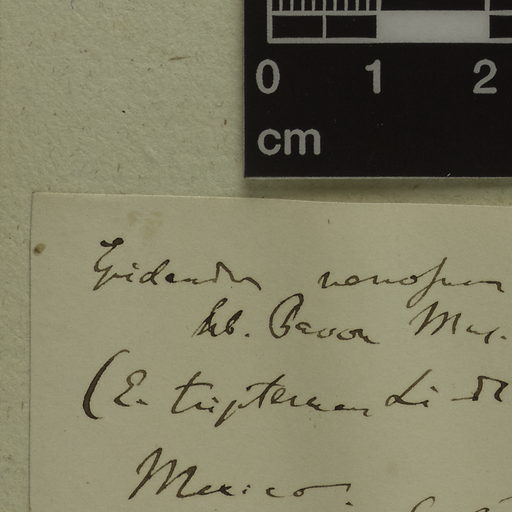 0 1 2
cm
Epidendrum venosum
hb. Pavon Mus.
(E. tripterum Li
Mexico